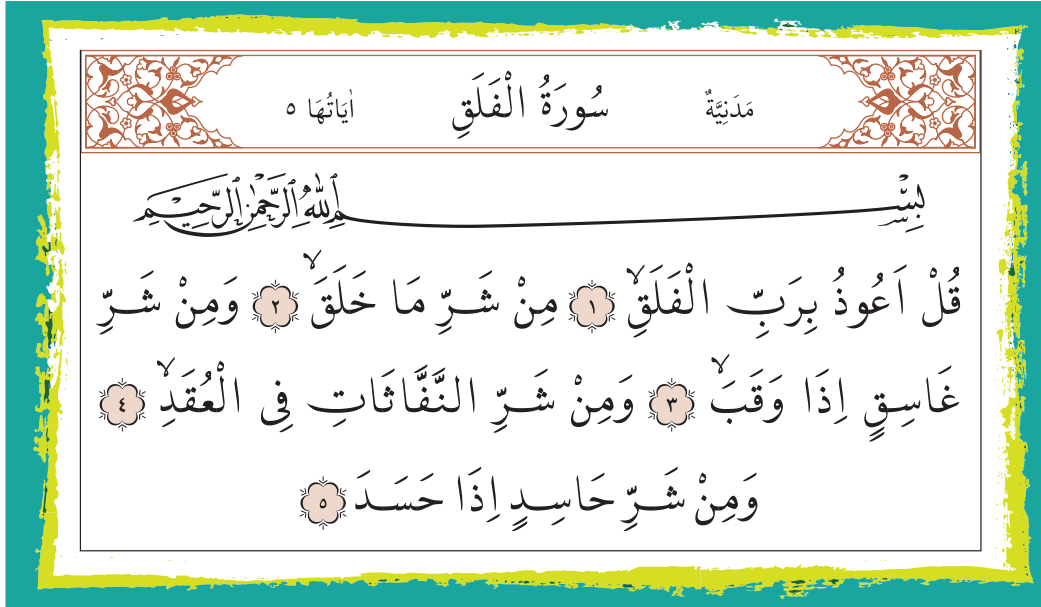 مَدَنِيَّةٌ سُورَةُ الْفَلَقِ اٰيَاتُهَا ٥
بِسْمِ اللّٰهِ الرَّحْمٰنِ الرَّحِيمِ
قُلْ اَعُوذُ بِرَبِّ الْفَلَقِۙ ١ مِنْ شَرِّ مَا خَلَقَۙ ٢ وَمِنْ شَرِّ
غَاسِقٍ اِذَا وَقَبَۙ ٣ وَمِنْ شَرِّ النَّفَّاثَاتِ فِى الْعُقَدِۙ ٤
وَمِنْ شَرِّ حَاسِدٍ اِذَا حَسَدَ ٥